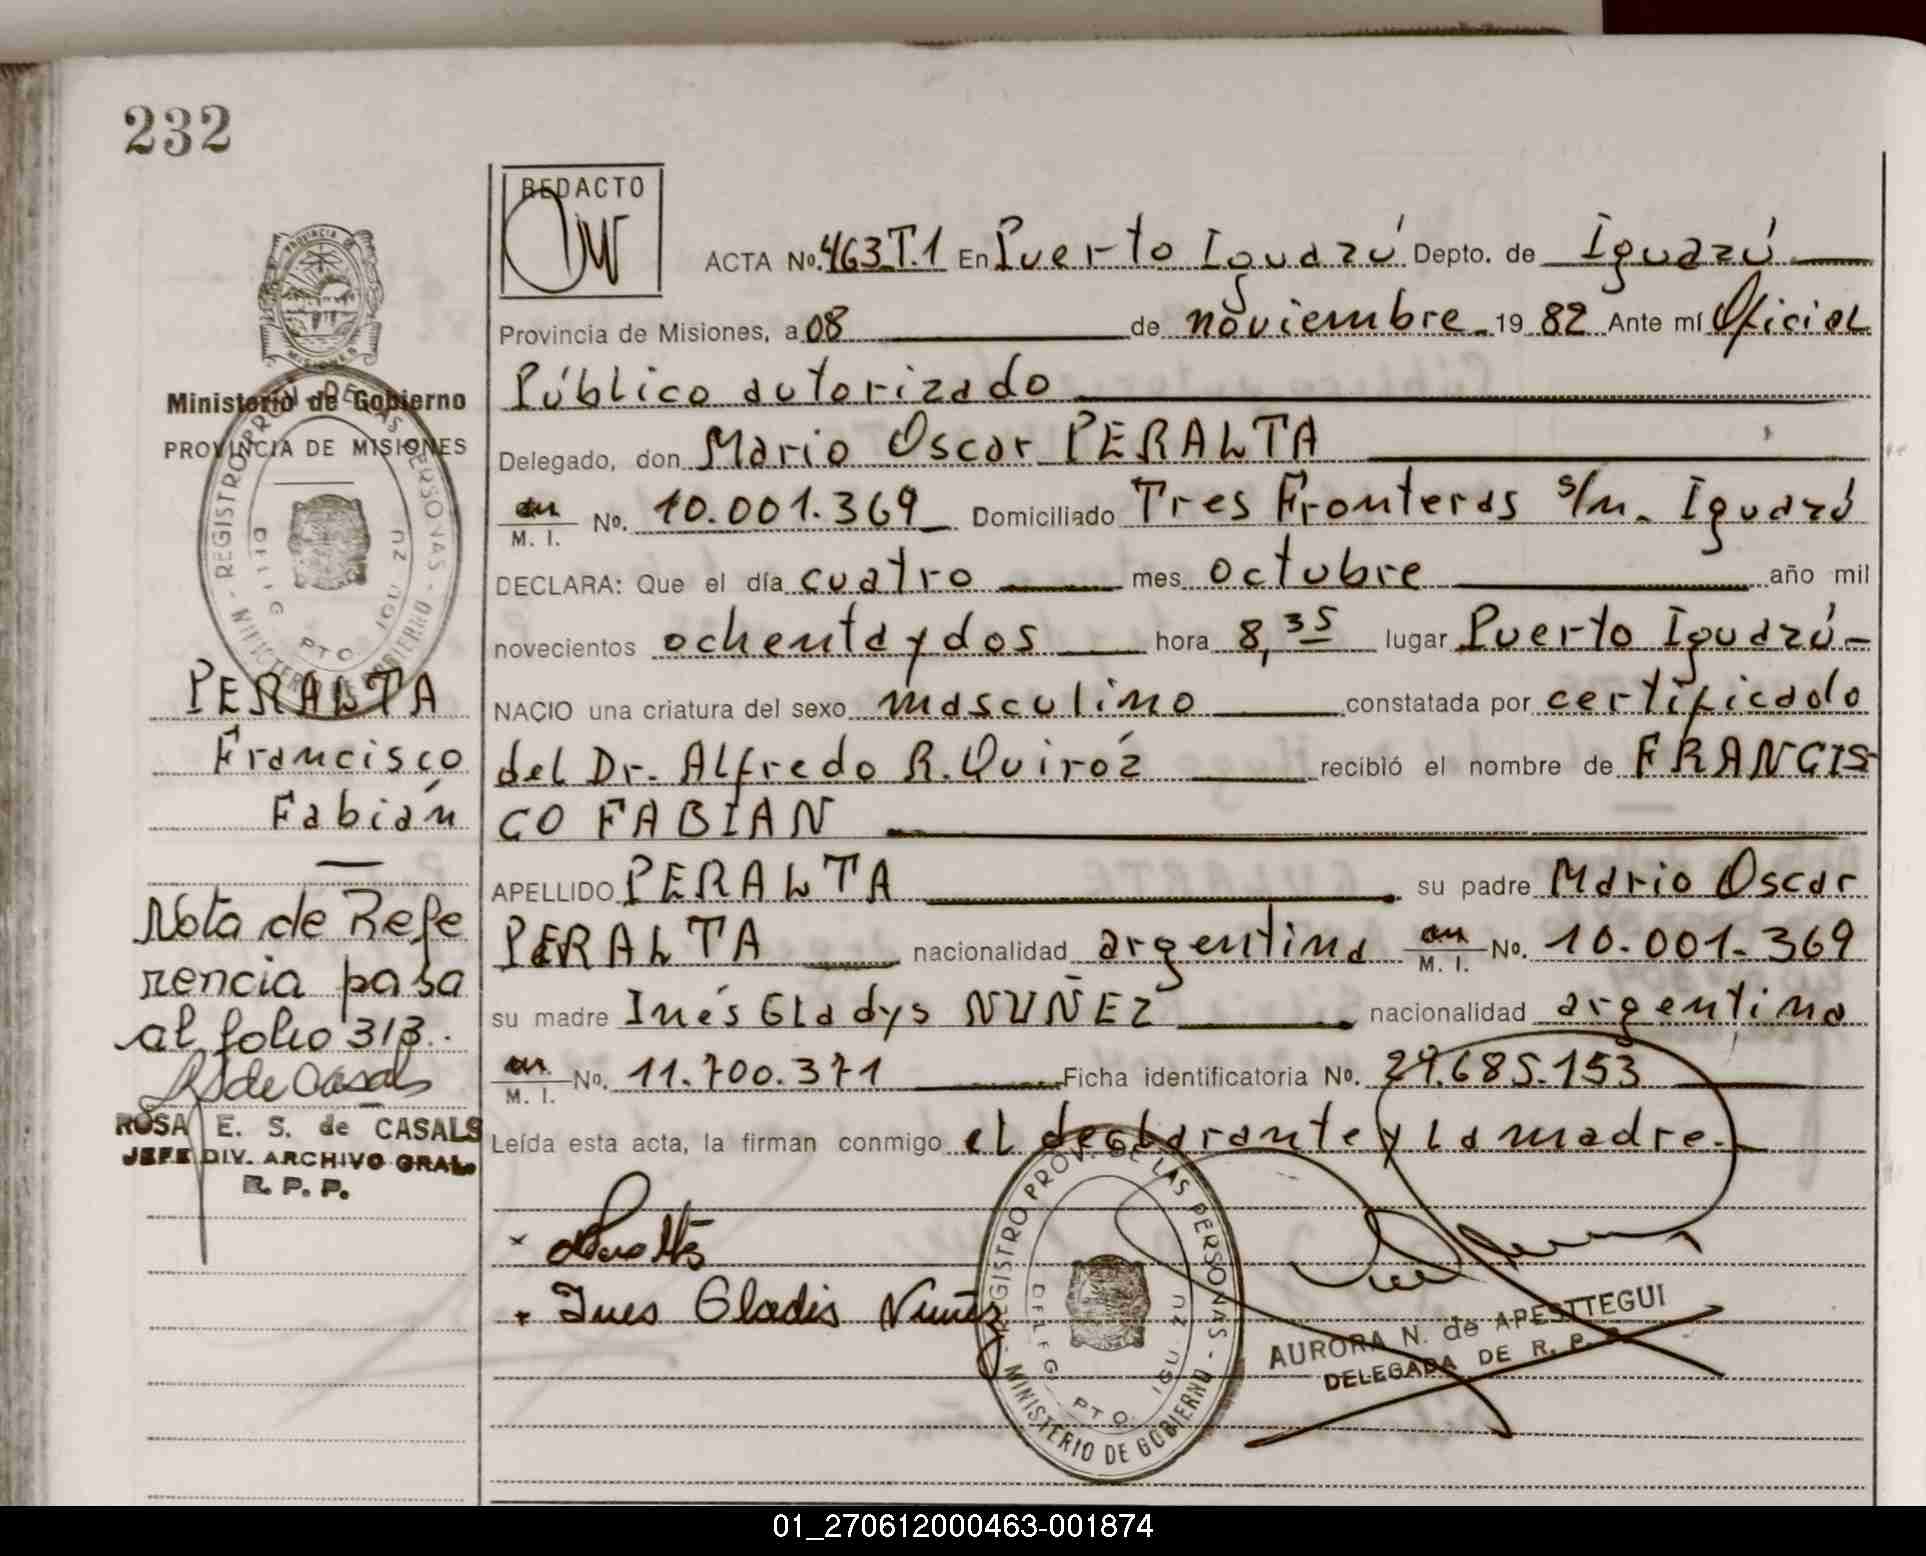 232
REDACTO
ACTA No. 463 T.1 En Puerto Iguazú Depto. de Iguazú
Provincia de Misiones, a 08 de noviembre 19 82 Ante mí Oficial
Público autorizado
Delegado, don Mario Oscar PERALTA
M. I. No. 10.001.369 Domiciliado Tres Fronteras s/n. Iguazú
DECLARA: Que el día cuatro mes octubre año mil
novecientos ochenta y dos hora 8,35 lugar Puerto Iguazú
NACIO una criatura del sexo masculino constatada por certificado
del Dr. Alfredo R. Quiróz recibió el nombre de FRANCIS
CO FABIAN
APELLIDO PERALTA su padre Mario Oscar
PERALTA nacionalidad argentina M. I. No. 10.001.369
su madre Inés Gladys NUÑEZ nacionalidad argentina
M. I. No. 11.700.371 Ficha identificatoria No. 29.685.153
Leída esta acta, la firman conmigo el declarante y la madre.
Peralta
Ines Gladis Nuñez
AURORA N. de APESTTEGUI
DELEGADA DE R. P. P.
REGISTRO PROV. DE LAS PERSONAS - MINISTERIO DE GOBIERNO
DELEG. PTO. IGUAZU
PROVINCIA DE MISIONES
Ministerio de Gobierno
PROVINCIA DE MISIONES
REGISTRO PROV. DE LAS PERSONAS - MINISTERIO DE GOBIERNO
DELEG. PTO. IGUAZU
PERALTA
Francisco
Fabián
Nota de Refe
rencia pasa
al folio 313.
R S de Casals
ROSA E. S. de CASALS
JEFE DIV. ARCHIVO GRAL.
R. P. P.
01_270612000463-001874